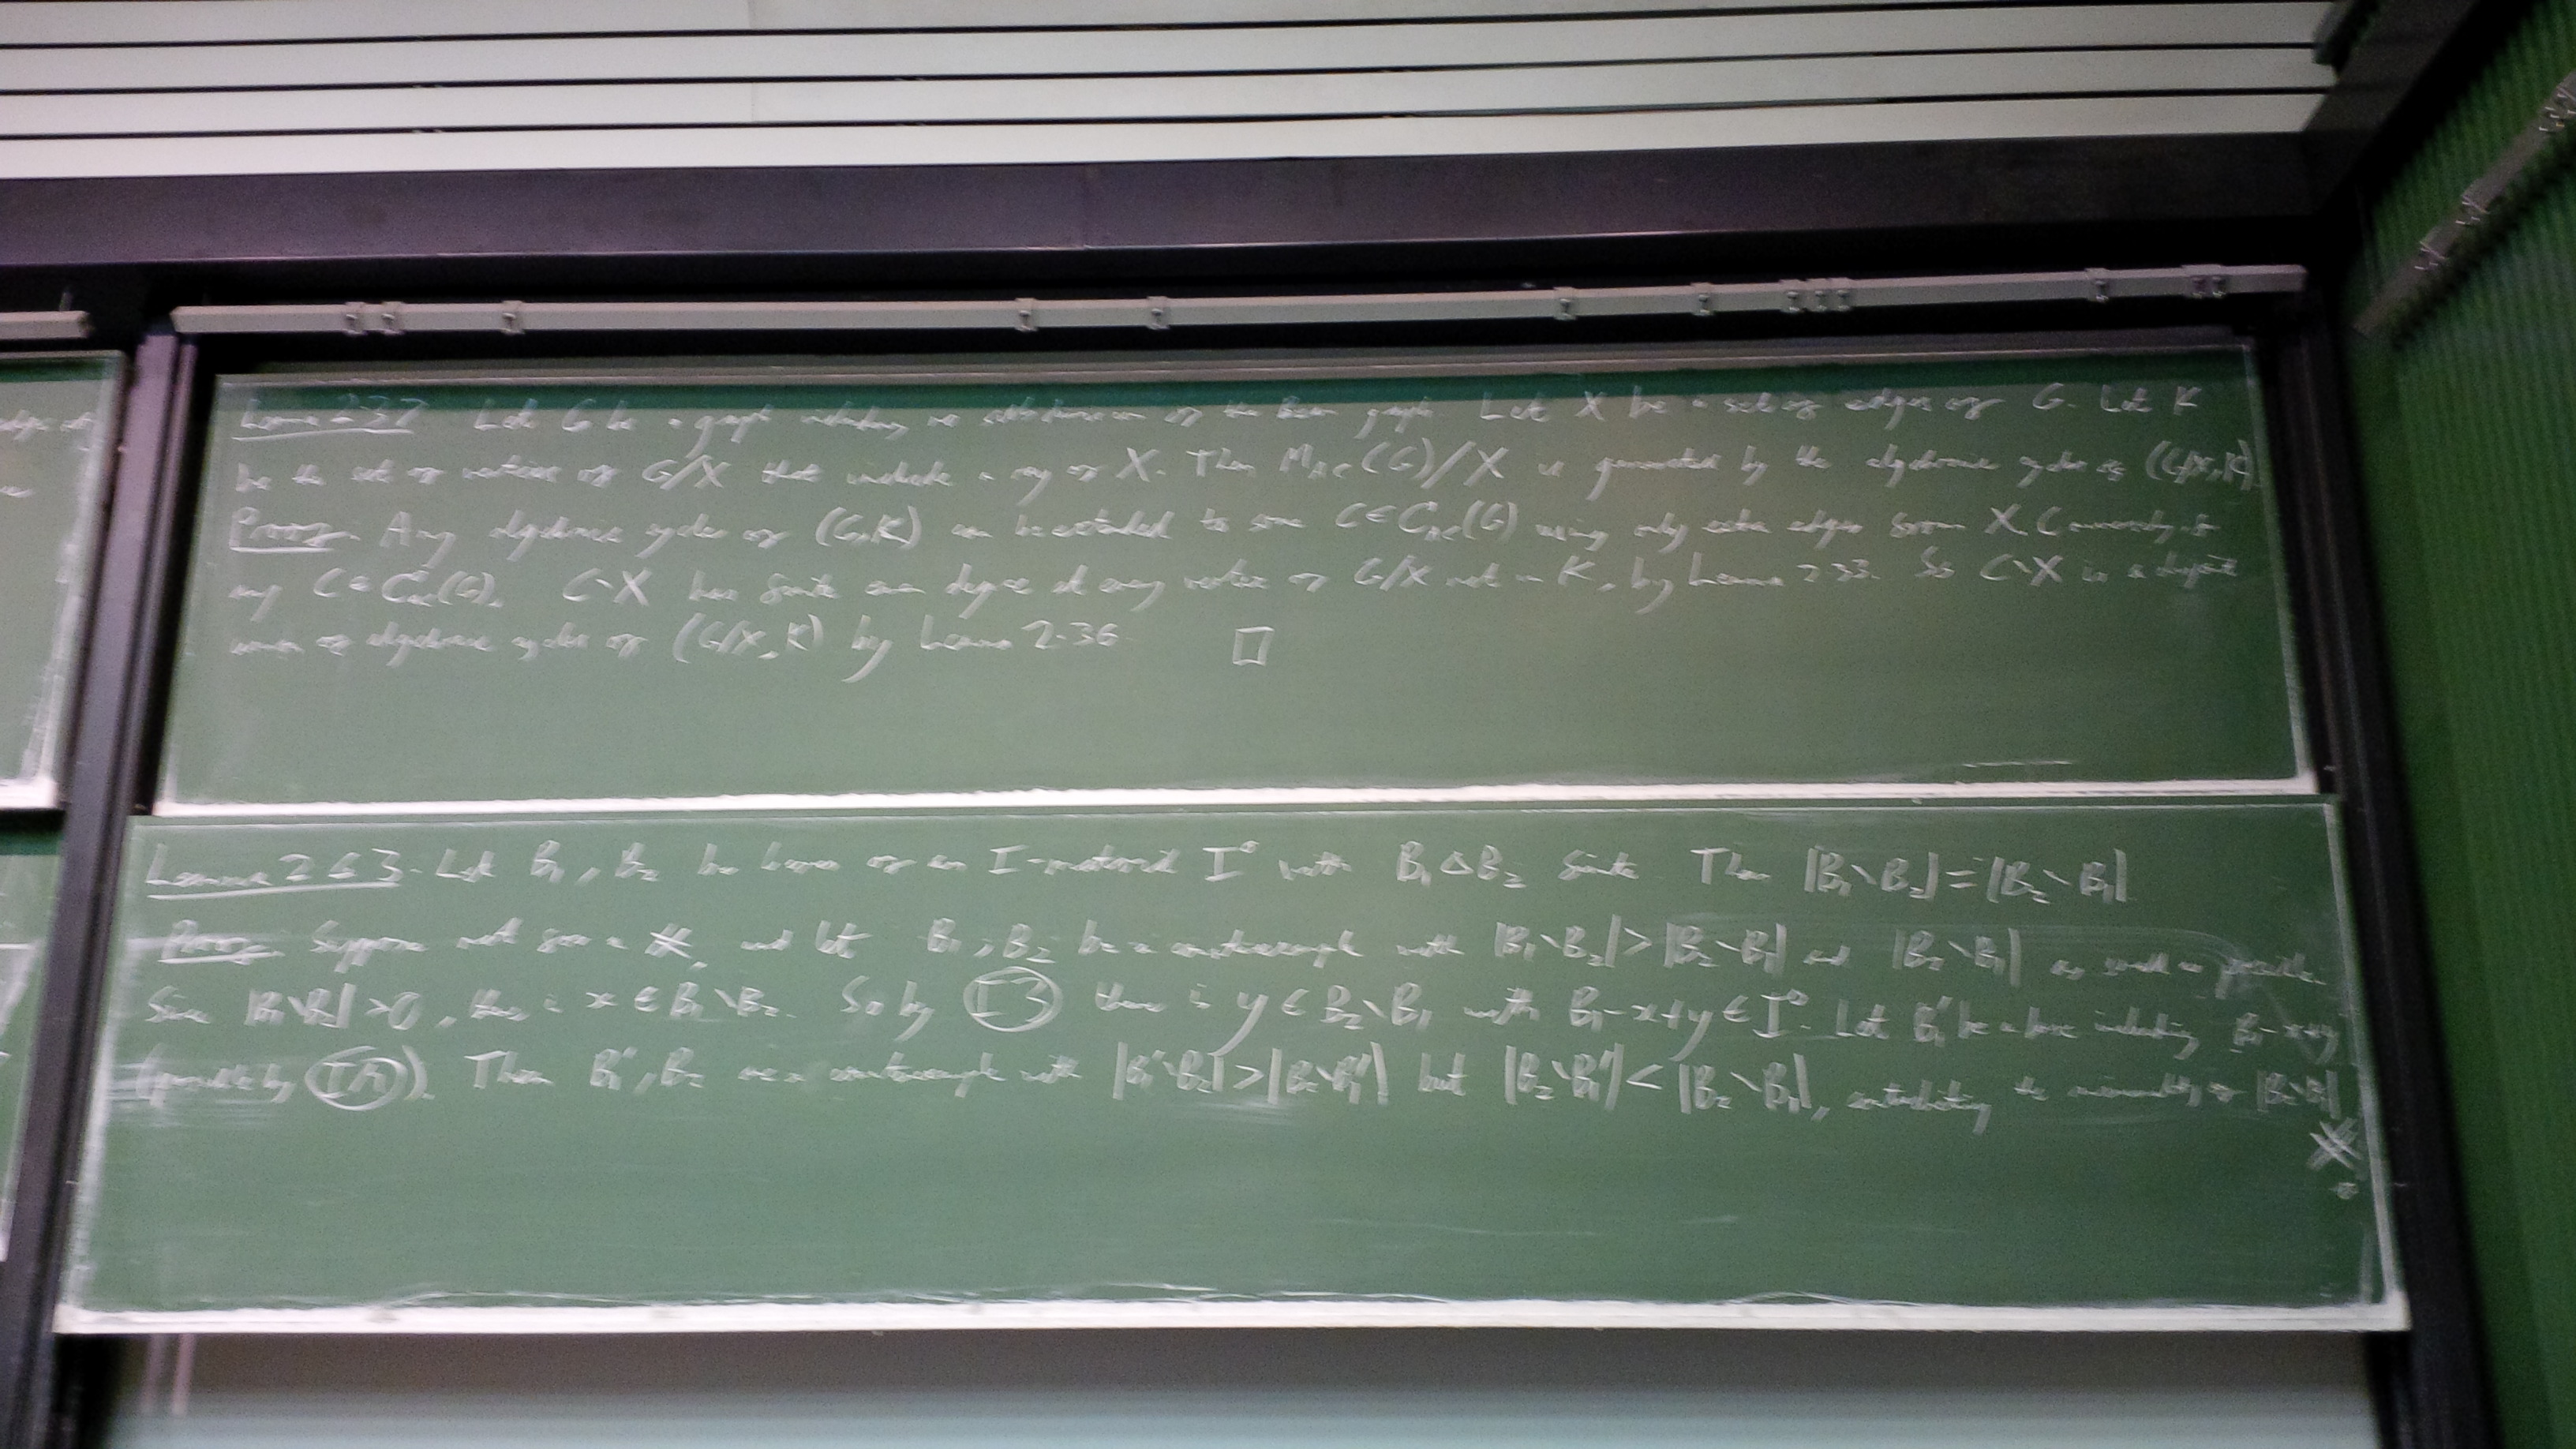 Lemma 2.37 Let G be a graph including no subdivision of the Bean graph. Let X be a set of edges of G. Let K
be the set of vertices of G/X that include a ray of X. Then M_AC(G)/X is generated by the algebraic cycles of (G/X, K)
Proof: Any algebraic cycle of (G, K) can be extended to some C ∈ C_AC(G) using only extra edges from X. Conversely, for
any C ∈ C_AC(G), C∖X has finite even degree at every vertex of G/X not in K, by Lemma 2.33. So C∖X is a disjoint
union of algebraic cycles of (G/X, K) by Lemma 2.36 □
Lemma 2.63. Let B₁, B₂ be bases of an I-matroid I° with B₁ Δ B₂ finite Then |B₁∖B₂| = |B₂∖B₁|
Proof: Suppose not for a, and let B₁, B₂ be a counterexample with |B₁∖B₂| > |B₂∖B₁| and |B₂∖B₁| as small as possible.
Since |B₁∖B₂| > 0, there is x ∈ B₁∖B₂. So by (I3) there is y ∈ B₂∖B₁ with B₁-x+y ∈ I°. Let B₁' be a base including B₁-x+y
(possible by (IM)). Then B₁', B₂ are a counterexample with |B₁'∖B₂| > |B₂∖B₁'| but |B₂∖B₁'| < |B₂∖B₁|, contradicting the minimality of |B₂∖B₁|